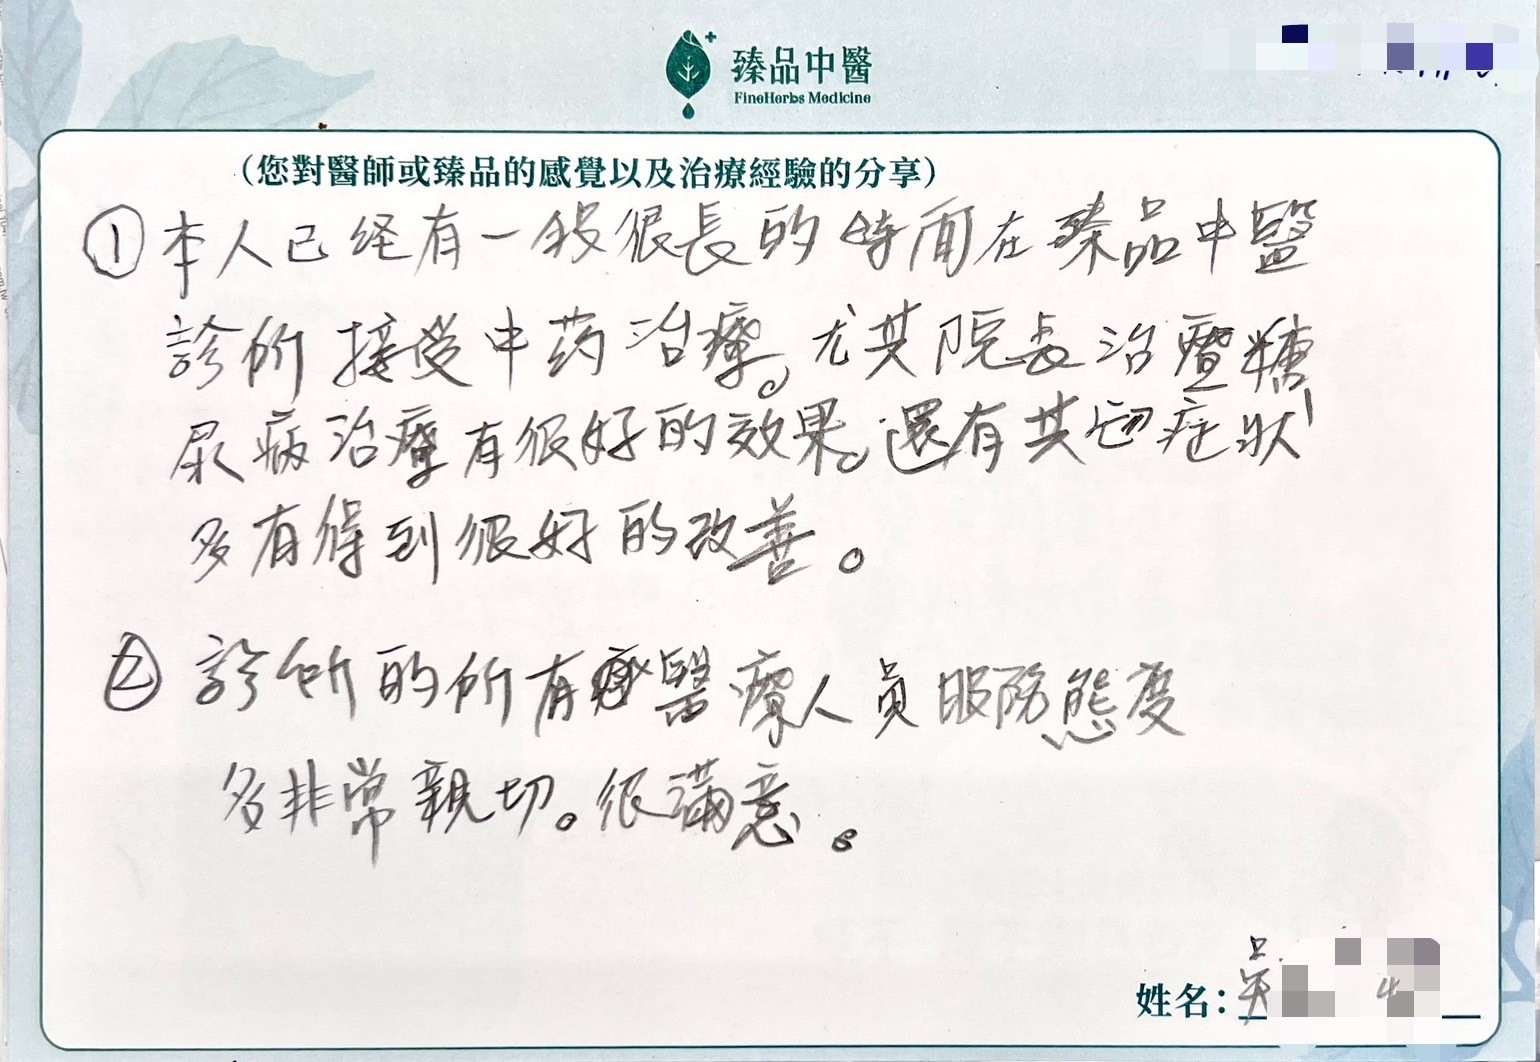 臻品中醫
FineHerbs Medicine
（您對醫師或臻品的感覺以及治療經驗的分享）
① 本人已经有一段很長的時间在臻品中醫
診所接受中药治療。尤其院長治療糖
尿病治療有很好的效果。還有其它症狀
多有得到很好的改善。
② 診所的所有醫療人員服務態度
多非常親切。很滿意。
姓名：吳